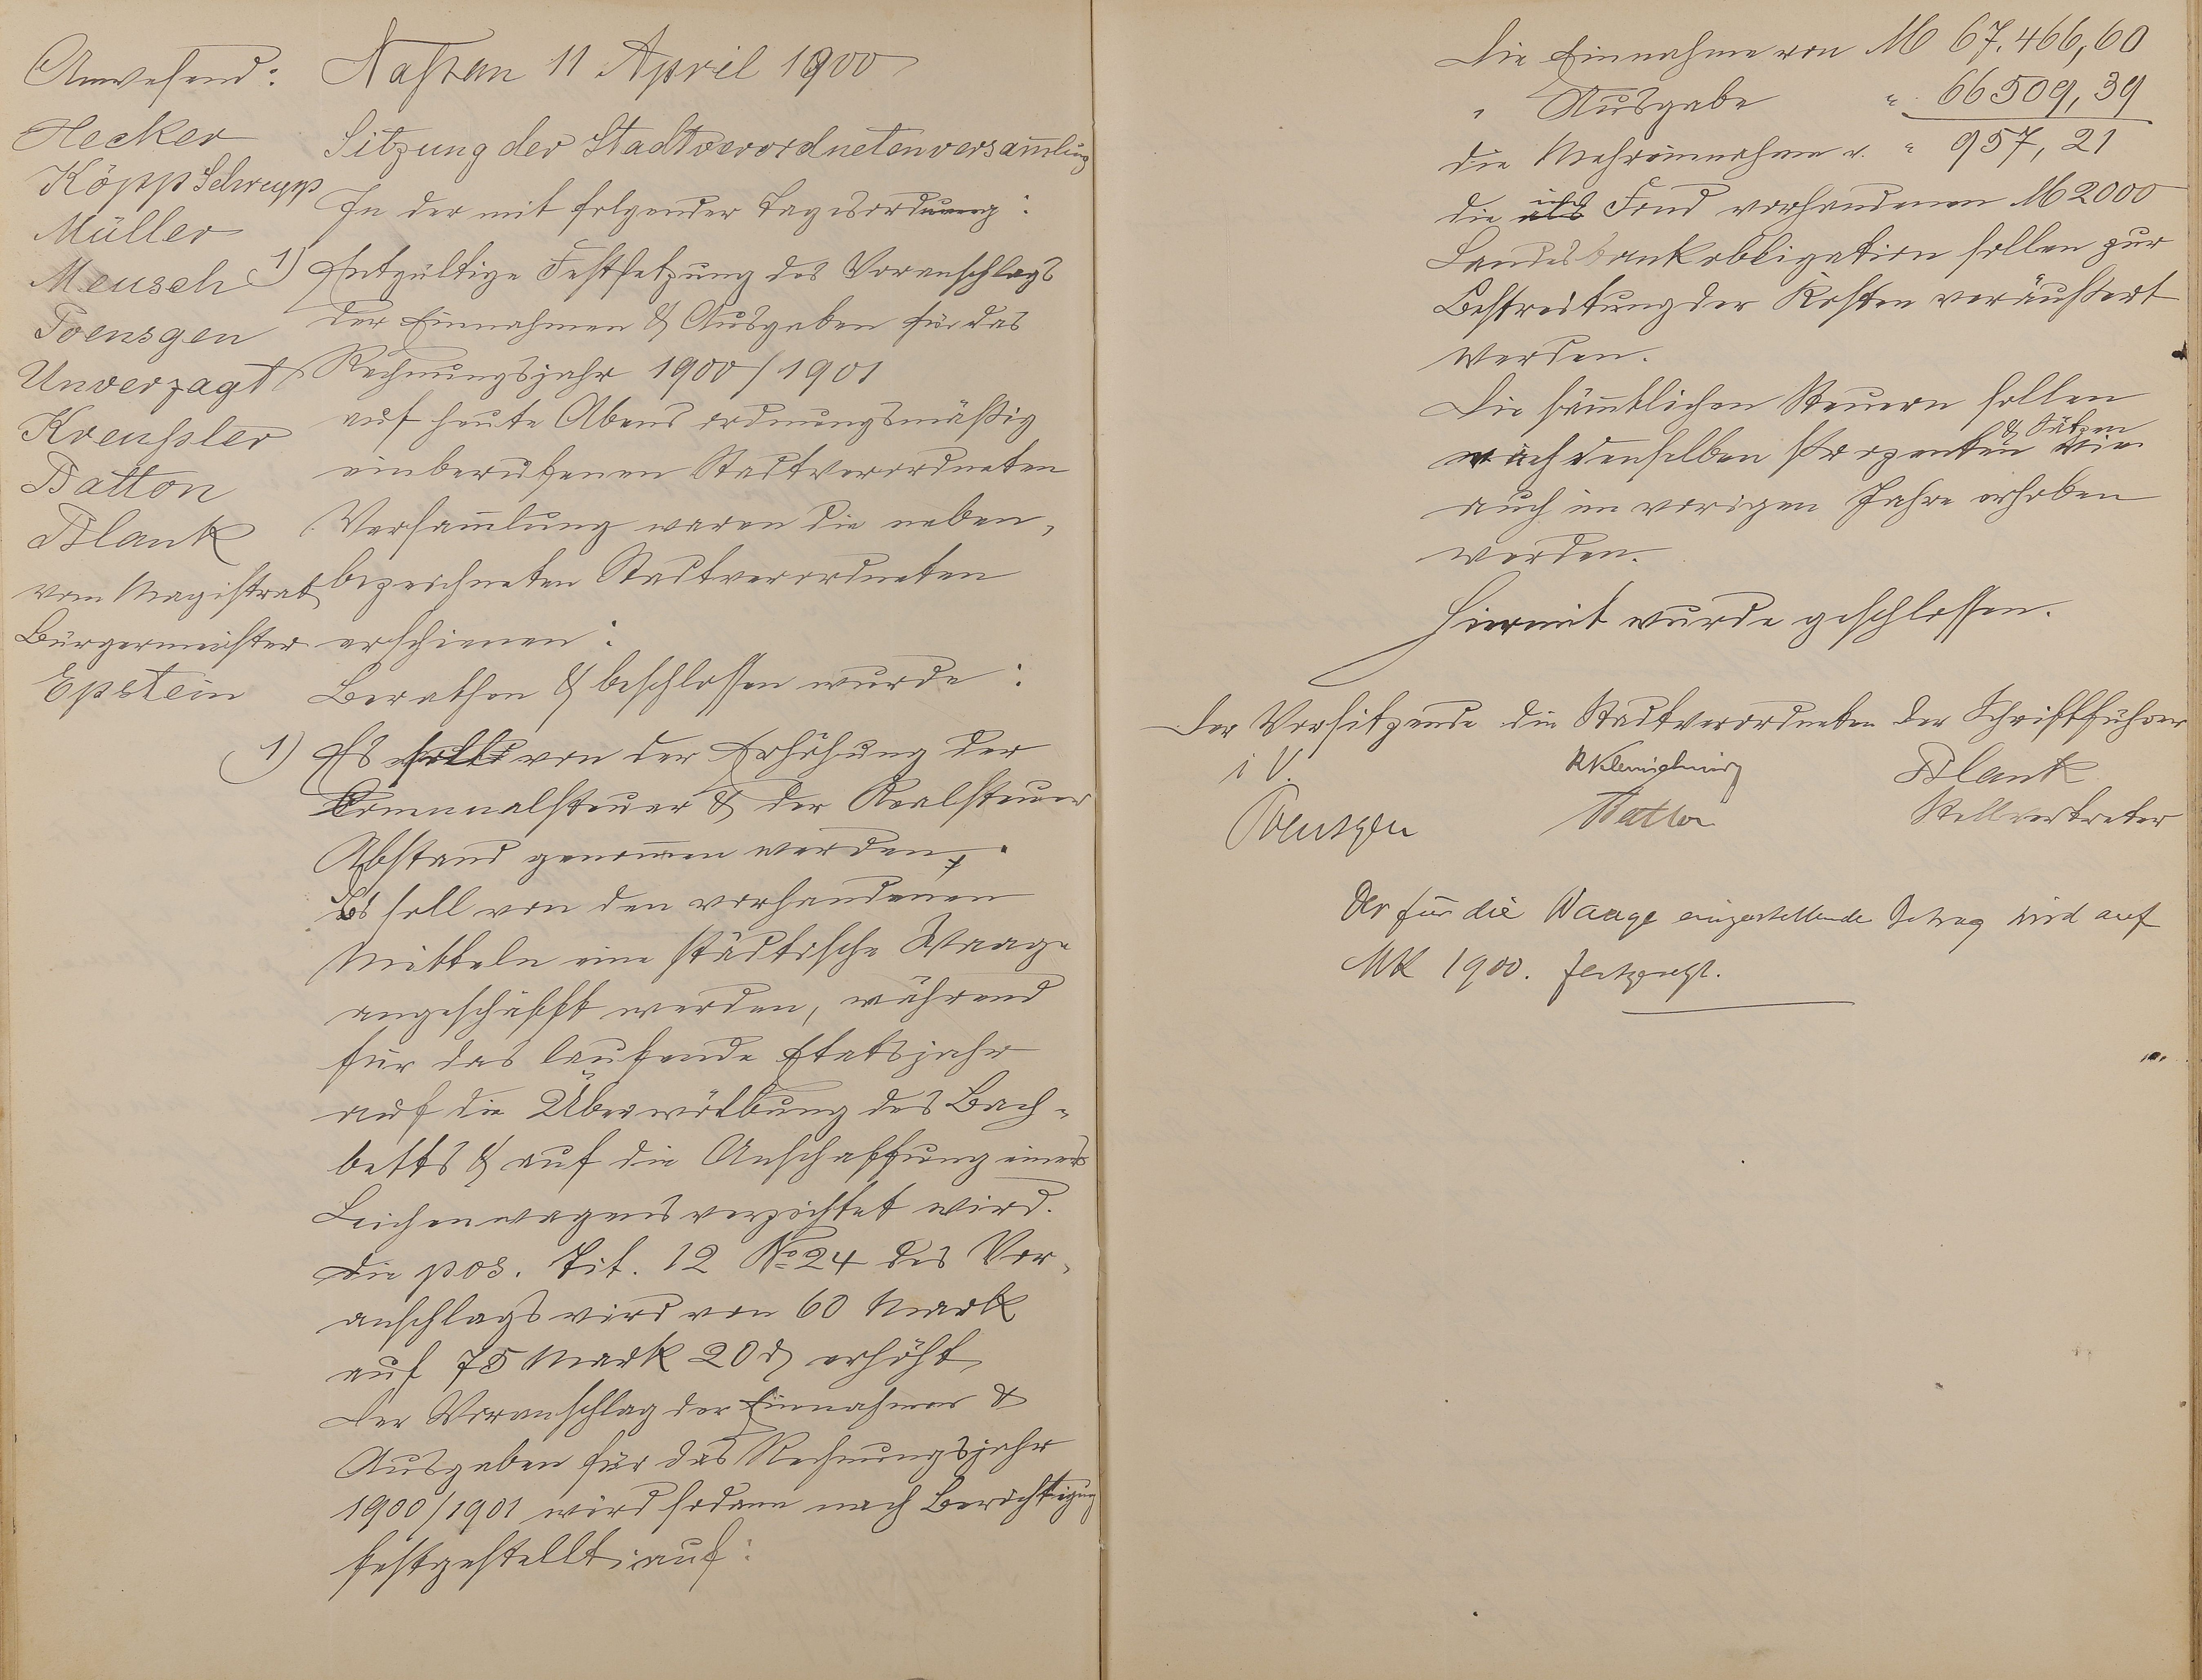 Anwesend:
Hecker
Köpp Schrupp
Müller
Meusch
Poensgen
Unverzagt
Kreußler
Batton
Blank
vom Magistrat
Bürgermeister
Epstein
Nastan 11 April 1900
Sitzung der Stadtverordnetenversam̄lung
In der mit folgender Tagesordnung:
1) Entgültige Festsetzung des Voranschlags
der Einnahmen & Ausgaben für das
Rechnungsjahr 1900/1901
auf heute Abend ordnungsmäßig
einberufenen Stadtverordneten
Versam̄lung waren die neben-
bezeichneten Stadtverordneten
erschienen:
Berathen & beschlossen wurde:
1) Es soll von der Erhöhung der
Communalsteuer & der Realsteuer
Abstand genom̄en werden.
Es soll von den vorhandenen
Mitteln eine städtische Waage
angeschafft werden, während
für das laufende Etatsjahr
auf die Überwölbung des Bach-
betts & auf die Anschaffung eines
Leichenwagens verzichtet wird.
Die pos. Tit. 12 No 24 des Vor-
anschlags wird von 60 Mark
auf 75 Mark 20 ₰ erhöht
Der Voranschlag der Einnahmen &
Ausgaben für das Rechnungsjahr
1900/1901 wird sodann nach Berichtigung
festgestellt auf:
Die Einnahme von M 67.466,60
" Ausgabe " 66509,39
die Mehreinnahme v. " 957,21
die als Fond vorhandenen M 2000
Landesbankobligation sollen zur
Bestreitung der Kosten veräußert
werden.
Die säm̄tlichen Steuern sollen
nach denselben Prozenten & Sätzen wie
auch im vorigen Jahre erhoben
werden.
Hiermit wurde geschlossen.
Der Vorsitzende die Stadtverordneten Der Schriftführer
i V. Blank
Poensgen Batton Stellvertreter
Der für die Waage einzustellende Betrag wird auf
MK 1900. festgesetzt.